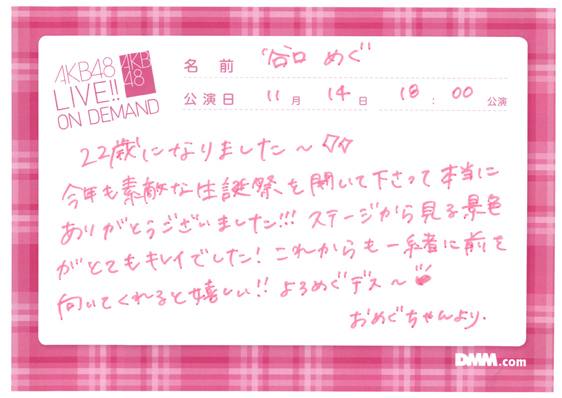 AKB48
LIVE!!
ON DEMAND
AKB
48
名前 谷口 めぐ
公演日 11月 14日 18:00 公演
22歳になりました〜♡♡
今年も素敵な生誕祭を開いて下さって本当に
ありがとうございました!!! ステージから見る景色
がとてもキレイでした! これからも一緒に前を
向いてくれると嬉しい!! よろめぐデス〜
おめぐちゃんより.
DMM.com